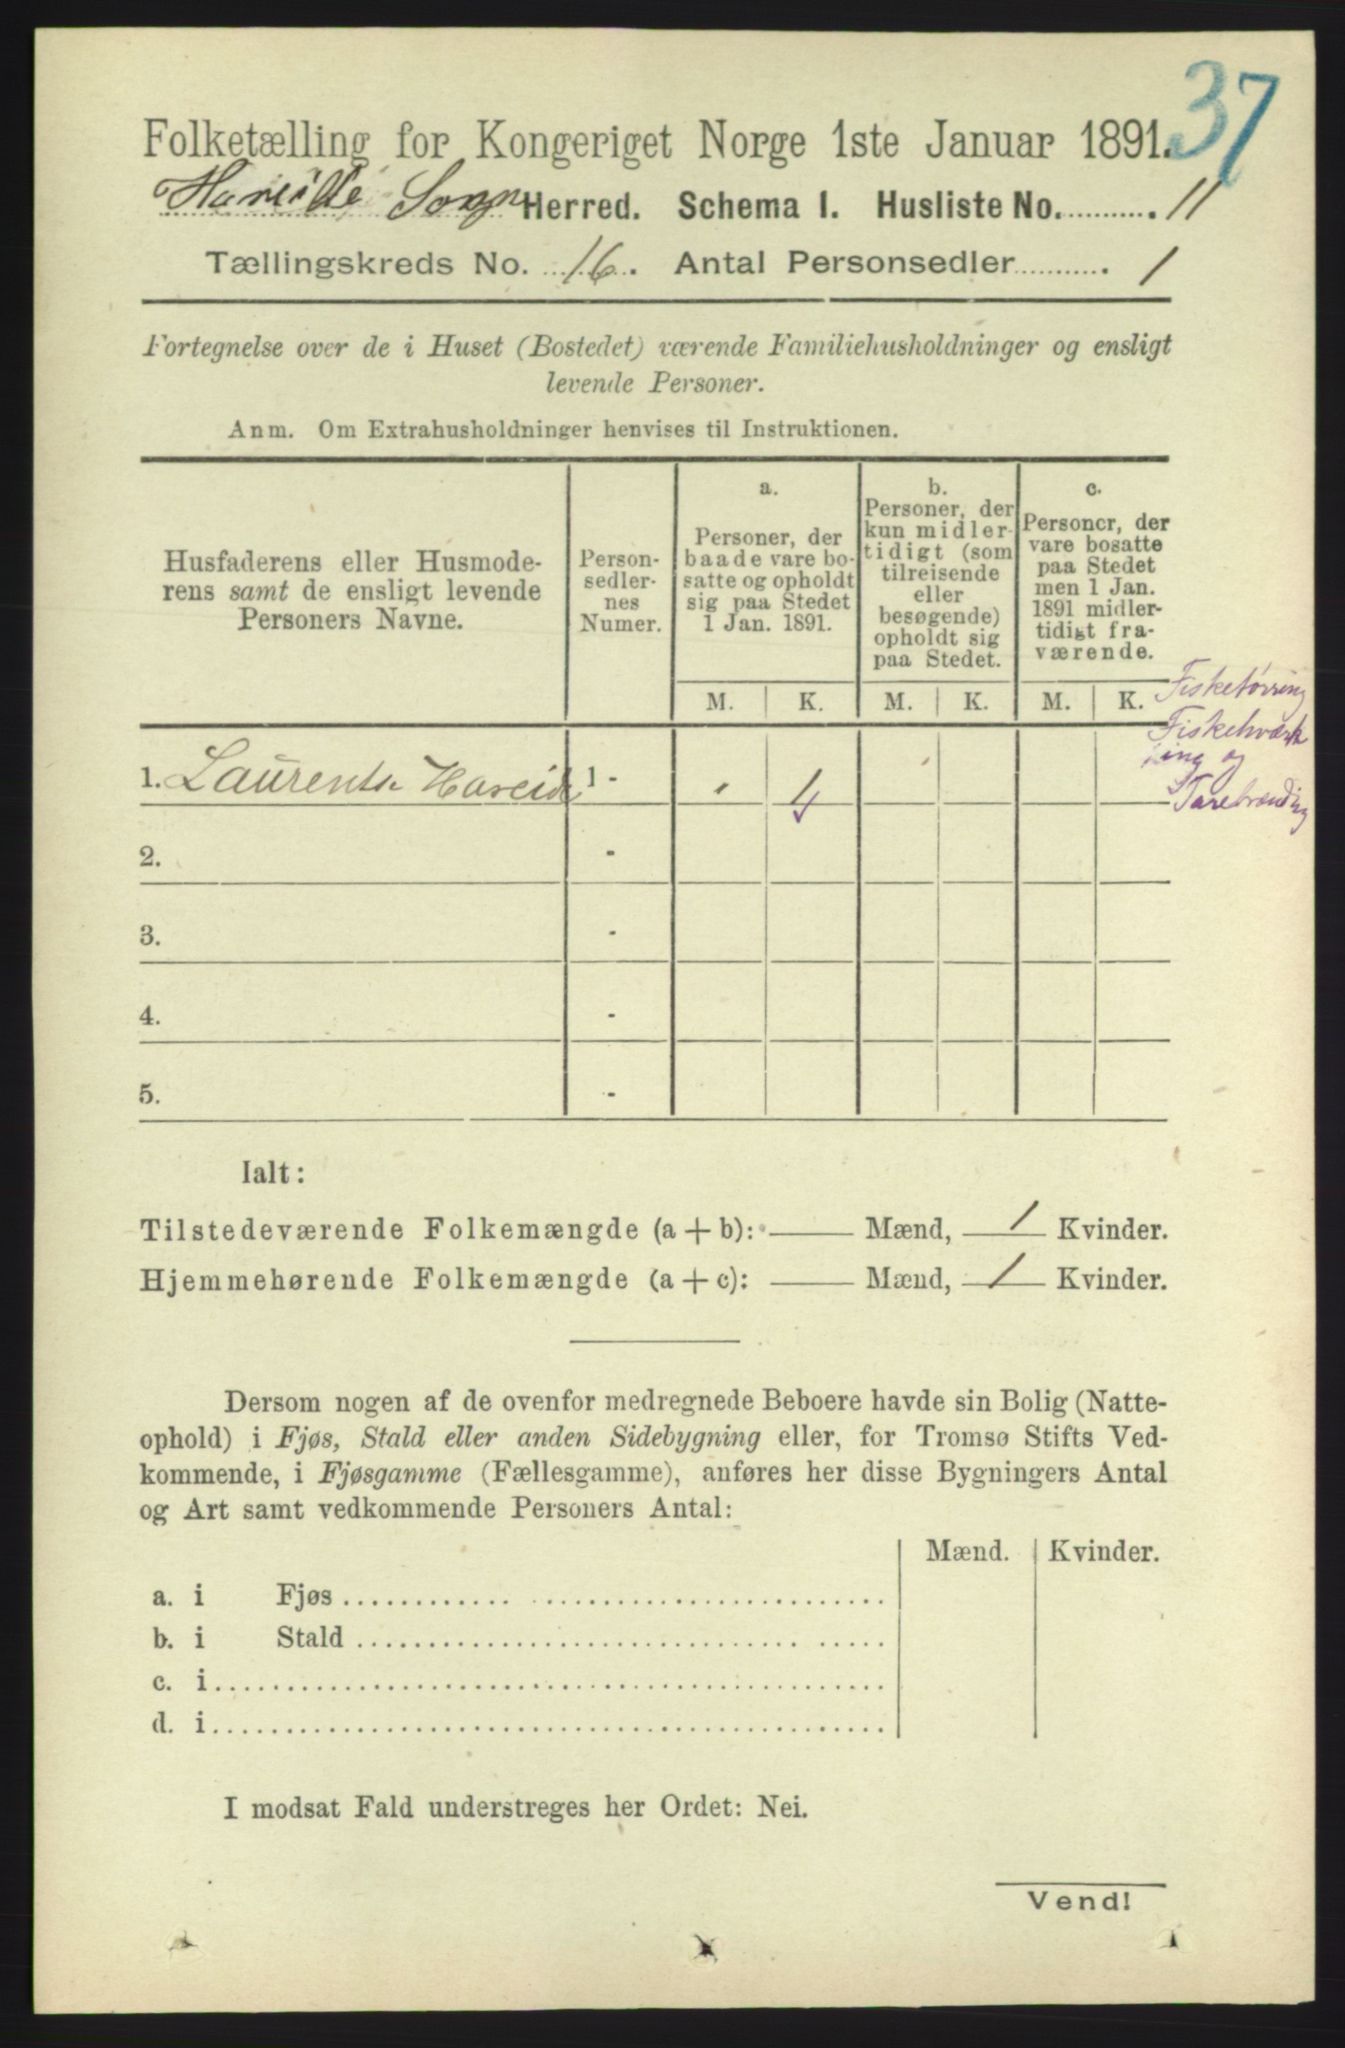 37
Folketælling for Kongeriget Norge 1ste Januar 1891.
Sogn Herred. Schema 1. Husliste No. 11
Tællingskreds No. 16. Antal Personsedler 1
Fortegnelse over de i Huset (Bostedet) værende Familiehusholdninger og ensligt
levende Personer.
Anm. Om Extrahusholdninger henvises til Instruktionen.
Husfaderens eller Husmode-
rens samt de ensligt levende
Personers Navne.
Person-
sedler-
nes
Numer.
a.
Personer, der
baade vare bo-
satte og opholdt
sig paa Stedet
1 Jan. 1891.
b.
Personer, der
kun midler-
tidigt (som
tilreisende
eller
besøgende)
opholdt sig
paa Stedet.
c.
Personer, der
vare bosatte
paa Stedet
men 1 Jan.
1891 midler-
tidigt fra-
værende.
M. K. M. K. M. K.
Fisketörring
Fiskehværk
ing og
Tarebrænding
1. Laurentse Hareide 1 -
2. -
3. -
4. -
5. -
Ialt:
Tilstedeværende Folkemængde (a + b): Mænd, 1 Kvinder.
Hjemmehørende Folkemængde (a + c): Mænd, 1 Kvinder.
Dersom nogen af de ovenfor medregnede Beboere havde sin Bolig (Natte-
ophold) i Fjøs, Stald eller anden Sidebygning eller, for Tromsø Stifts Ved-
kommende, i Fjøsgamme (Fællesgamme), anføres her disse Bygningers Antal
og Art samt vedkommende Personers Antal:
Mænd. Kvinder.
a. i Fjøs
b. i Stald
c. i
d. i
I modsat Fald understreges her Ordet: Nei.
Vend!